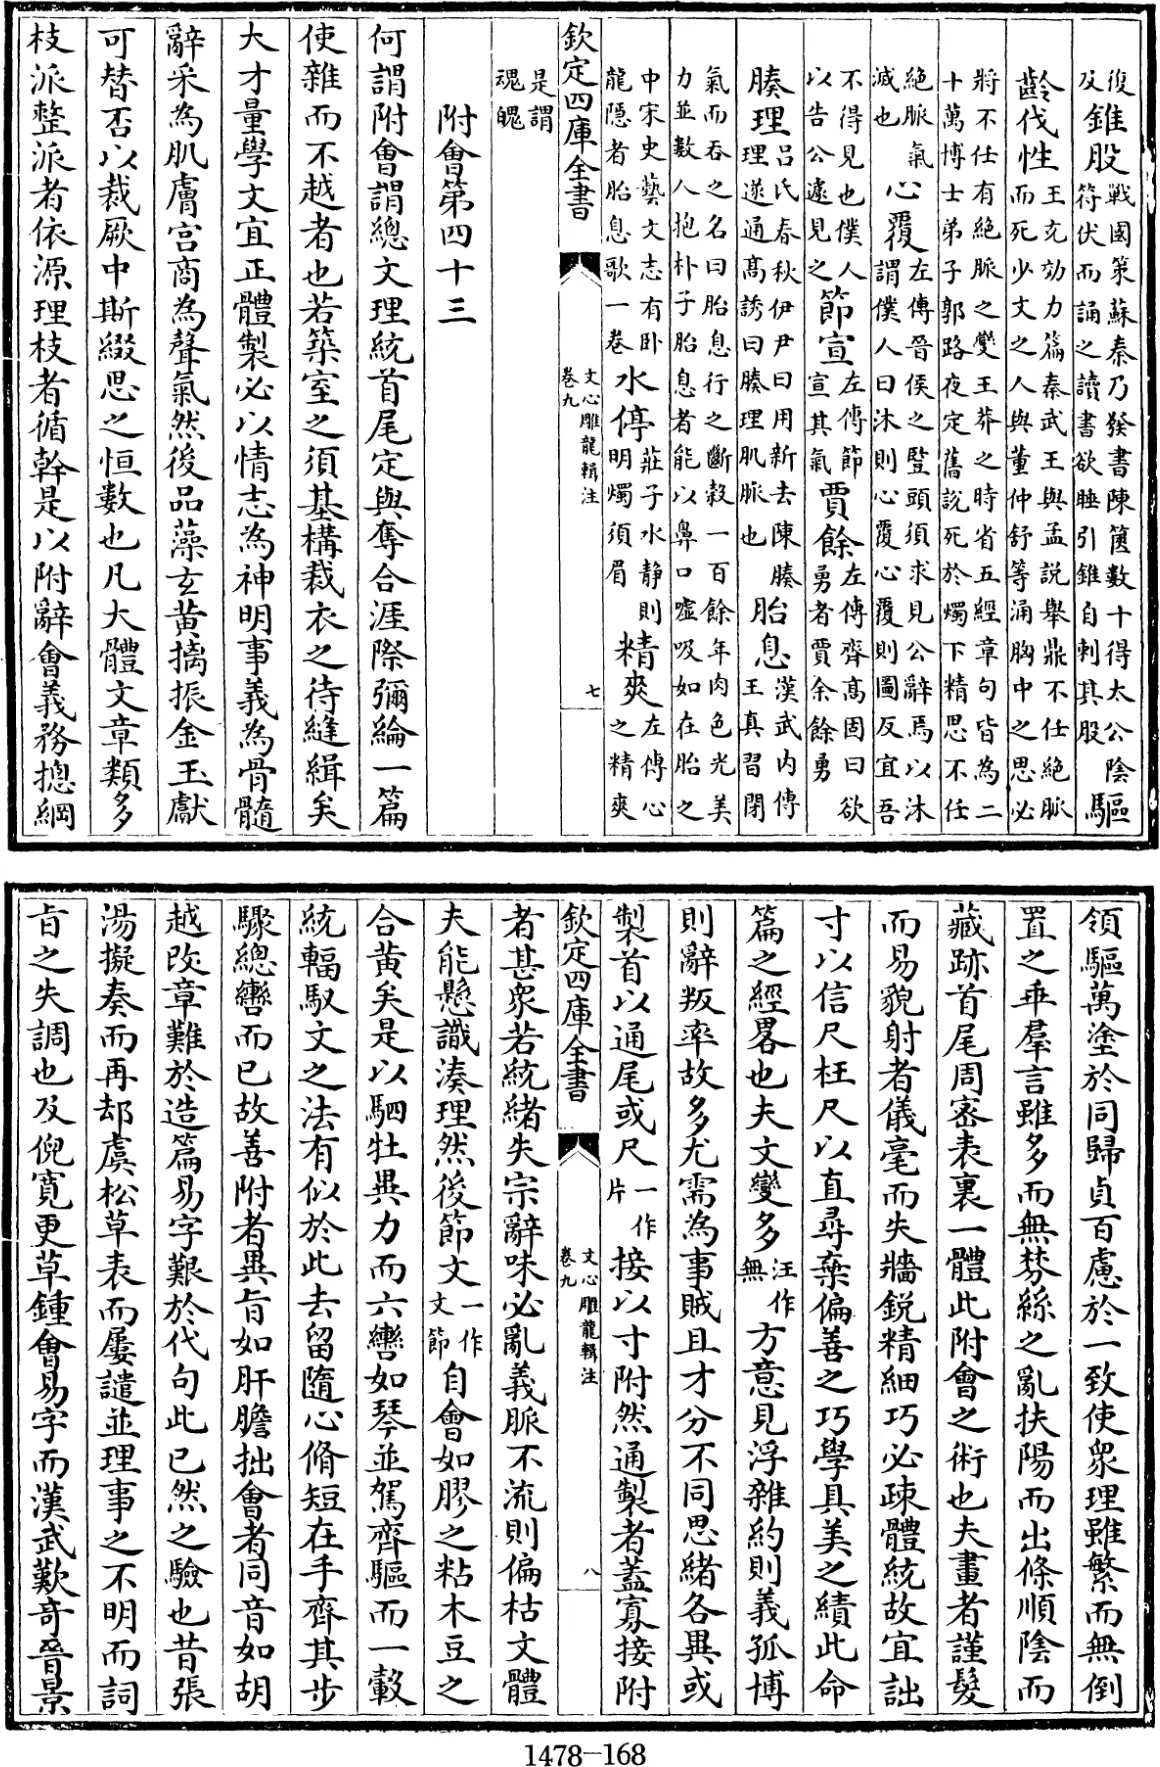 復及錐股戰國策蘇秦乃發書陳篋數十得太公陰符伏而誦之讀書欲睡引錐自刺其股驅
齡伐性王充効力篇秦武王與孟說舉鼎不任絶脈而死少文之人與董仲舒等涌胸中之思必
將不任有絶脈之變王莽之時省五經章句皆為二十萬博士弟子郭路夜定舊說死於燭下精思不任
絶脈氣滅也心覆左傳晉侯之豎頭須求見公辭焉以沐謂僕人曰沐則心覆心覆則圖反宜吾
不得見也僕人以告公遽見之節宣左傳節宣其氣賈餘左傳齊髙固曰欲勇者賈余餘勇
腠理吕氏春秋伊尹曰用新去陳腠理遂通髙誘曰腠理肌脈也胎息漢武内傳王真習閉
氣而吞之名曰胎息行之斷穀一百餘年肉色光美力並數人抱朴子胎息者能以鼻口噓吸如在胎之
中宋史藝文志有卧龍隱者胎息歌一卷水停莊子水静則明燭須眉精爽左傳心之精爽
欽定四庫全書 文心雕龍輯注 卷九 七
是謂魂魄
附會第四十三
何謂附會謂總文理統首尾定與奪合涯際彌綸一篇
使雜而不越者也若築室之須基構裁衣之待縫緝矣
大才量學文宜正體製必以情志為神明事義為骨髓
辭采為肌膚宫商為聲氣然後品藻玄黄摛振金玉獻
可替否以裁厥中斯綴思之恒數也凡大體文章類多
枝派整派者依源理枝者循幹是以附辭會義務揔綱
領驅萬塗於同歸貞百慮於一致使衆理雖繁而無倒
置之乖羣言雖多而無棼絲之亂扶陽而出條順陰而
藏跡首尾周密表裏一體此附會之術也夫畫者謹髮
而易貌射者儀毫而失牆鋭精細巧必疎體統故宜詘
寸以信尺枉尺以直尋棄偏善之巧學具美之績此命
篇之經畧也夫文變多汪作無方意見浮雜約則義孤博
則辭叛率故多尤需為事賊且才分不同思緒各異或
製首以通尾或尺一作片接以寸附然通製者蓋寡接附
欽定四庫全書 文心雕龍輯注 卷九 八
者甚衆若統緒失宗辭味必亂義脈不流則偏枯文體
夫能懸識湊理然後節文一作文節自會如膠之粘木豆之
合黄矣是以駟牡異力而六轡如琴並駕齊驅而一轂
統輻馭文之法有似於此去留隨心脩短在手齊其步
驟總轡而已故善附者異旨如肝膽拙會者同音如胡
越改章難於造篇易字艱於代句此已然之驗也昔張
湯擬奏而再却虞松草表而屢譴並理事之不明而詞
旨之失調也及倪寛更草鍾會易字而漢武歎奇晉景
1478-168